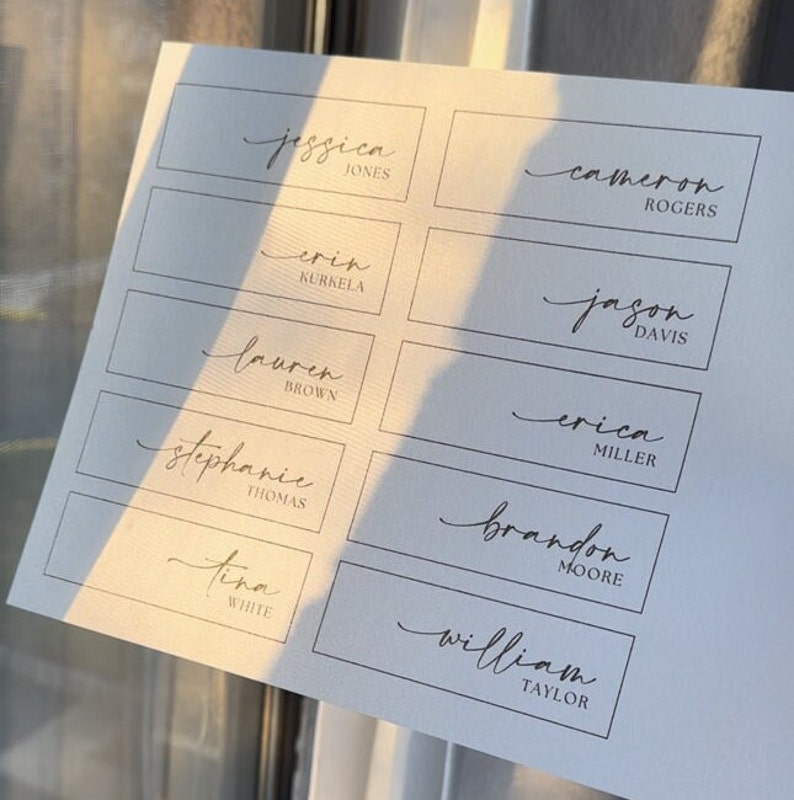 jessica
JONES
erin
KURKELA
lauren
BROWN
stephanie
THOMAS
tina
WHITE
cameron
ROGERS
jason
DAVIS
erica
MILLER
brandon
MOORE
william
TAYLOR